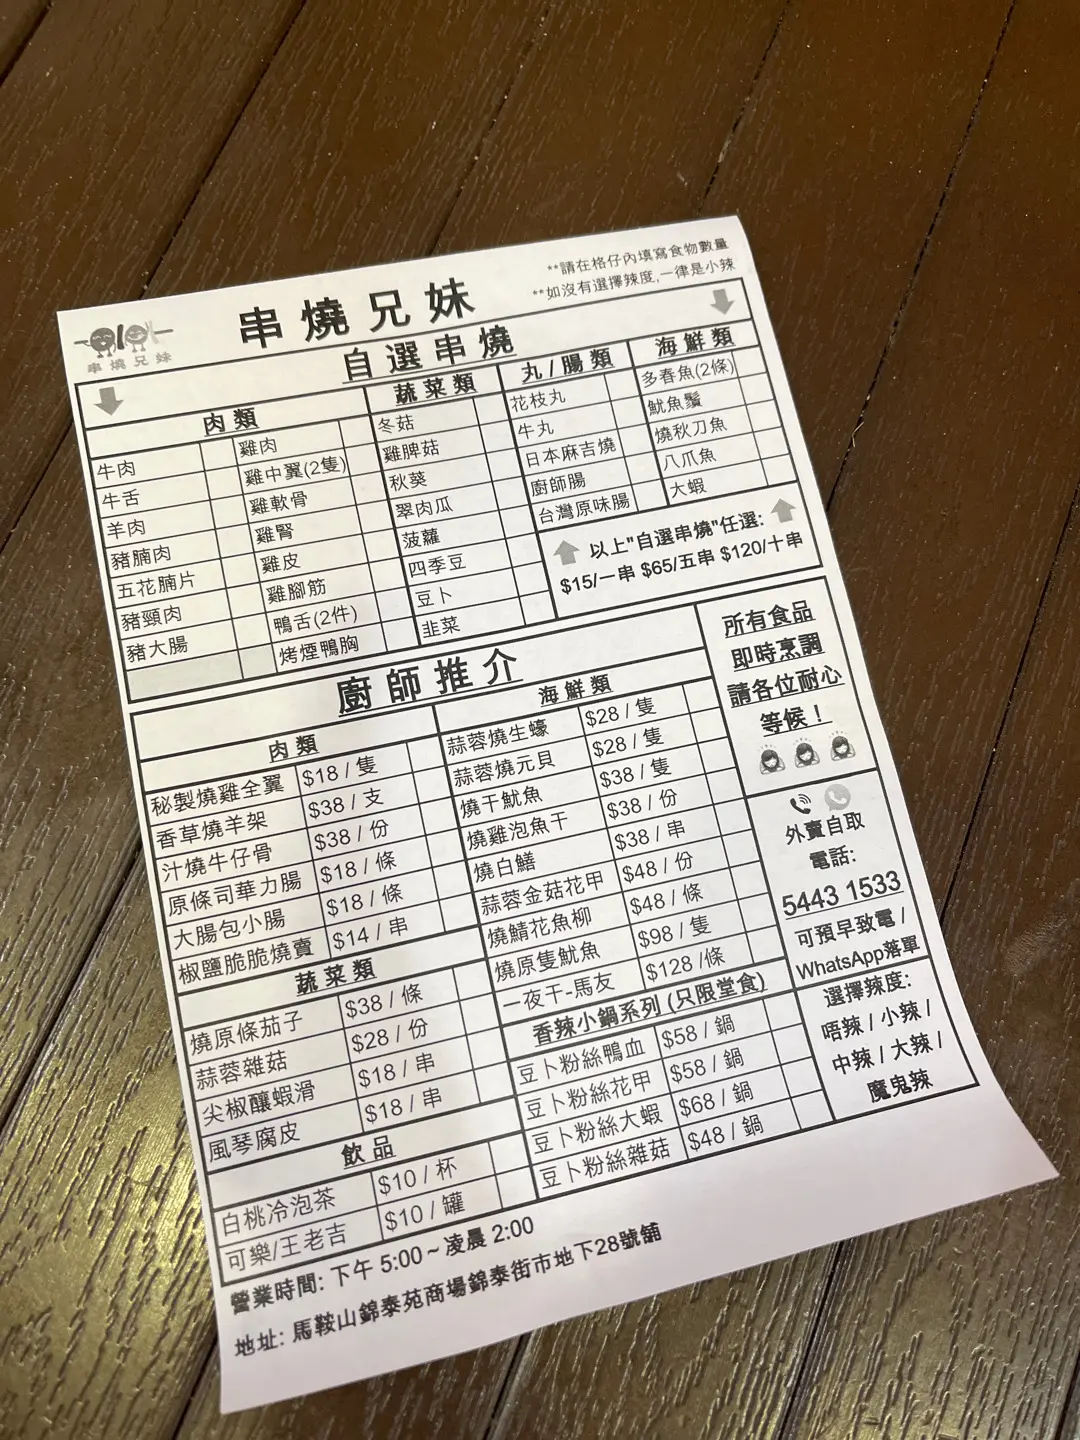 串燒兄妹
**請在格仔內填寫食物數量
**如沒有選擇辣度,一律是小辣
串燒兄妹
自選串燒
肉類
牛肉
牛舌
羊肉
豬腩肉
五花腩片
豬頸肉
豬大腸
雞肉
雞中翼(2隻)
雞軟骨
雞腎
雞皮
雞腳筋
鴨舌(2件)
烤煙鴨胸
蔬菜類
冬菇
雞脾菇
秋葵
翠肉瓜
菠蘿
四季豆
豆卜
韭菜
丸/腸類
花枝丸
牛丸
日本麻吉燒
廚師腸
台灣原味腸
海鮮類
多春魚(2條)
魷魚鬚
燒秋刀魚
八爪魚
大蝦
以上"自選串燒"任選:
$15/一串 $65/五串 $120/十串
廚師推介
肉類
秘製燒雞全翼 $18 / 隻
香草燒羊架 $38 / 支
汁燒牛仔骨 $38 / 份
原條司華力腸 $18 / 條
大腸包小腸 $18 / 條
椒鹽脆脆燒賣 $14 / 串
蔬菜類
燒原條茄子 $38 / 條
蒜蓉雜菇 $28 / 份
尖椒釀蝦滑 $18 / 串
風琴腐皮 $18 / 串
飲品
白桃冷泡茶 $10 / 杯
可樂/王老吉 $10 / 罐
海鮮類
蒜蓉燒生蠔 $28 / 隻
蒜蓉燒元貝 $28 / 隻
燒干魷魚 $38 / 隻
燒雞泡魚干 $38 / 份
燒白鱔 $38 / 串
蒜蓉金菇花甲 $48 / 份
燒鯖花魚柳 $48 / 條
燒原隻魷魚 $98 / 隻
一夜干-馬友 $128 /條
香辣小鍋系列 (只限堂食)
豆卜粉絲鴨血 $58 / 鍋
豆卜粉絲花甲 $58 / 鍋
豆卜粉絲大蝦 $68 / 鍋
豆卜粉絲雜菇 $48 / 鍋
所有食品
即時烹調
請各位耐心
等候！
外賣自取
電話:
5443 1533
可預早致電 /
WhatsApp落單
選擇辣度:
唔辣 / 小辣 /
中辣 / 大辣 /
魔鬼辣
營業時間: 下午 5:00 ~ 凌晨 2:00
地址: 馬鞍山錦泰苑商場錦泰街市地下28號舖